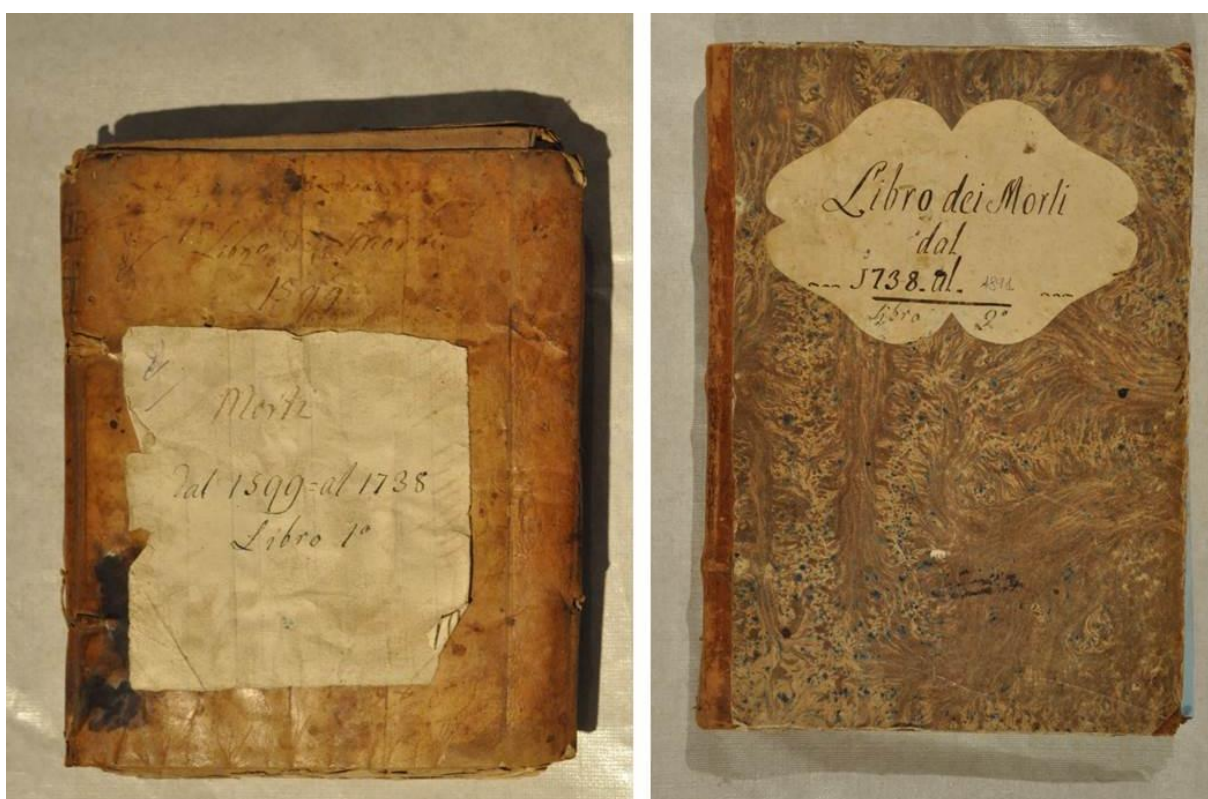 Libro dei Morti
1599
Morti
dal 1599=al 1738
Libro 1º
Libro dei Morti
dal
1738. al. 1811
Libro 2º